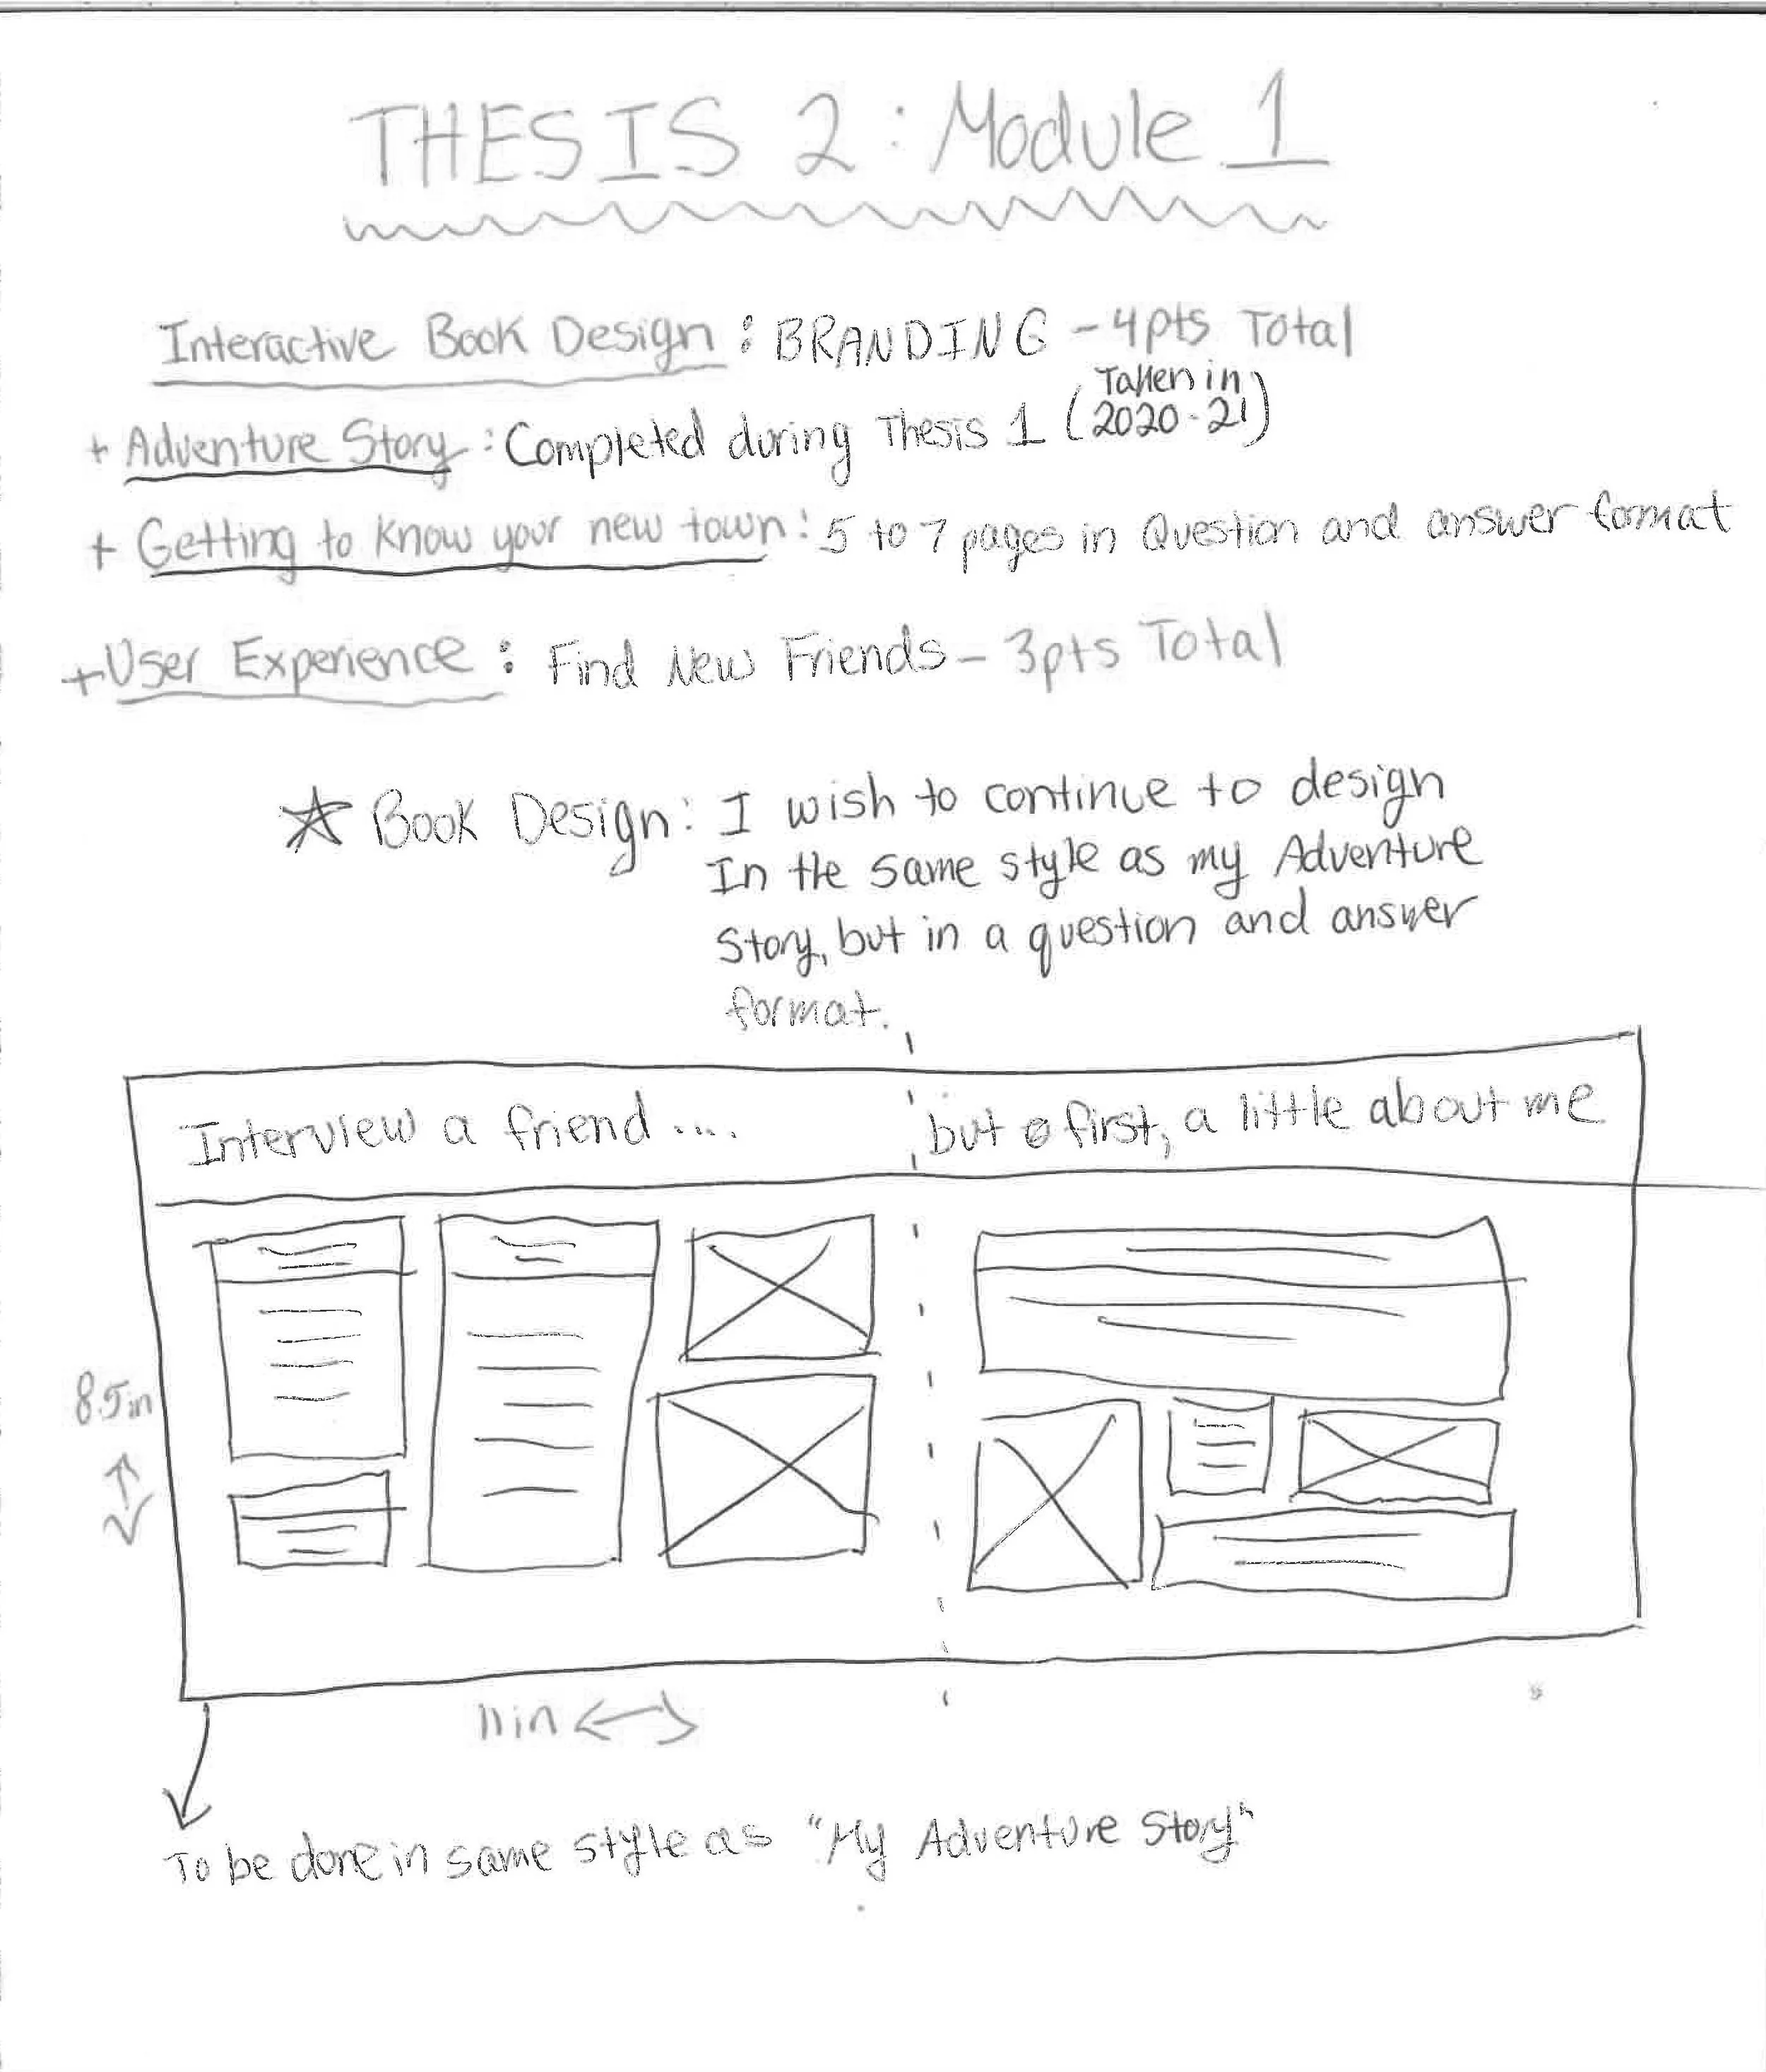 THESIS 2: Module 1
Interactive Book Design: BRANDING - 4pts Total
+ Adventure Story: Completed during Thesis 1 (Taken in 2020-21)
+ Getting to Know your new town: 5 to 7 pages in Question and answer format
+User Experience: Find New Friends - 3pts Total
☆ Book Design: I wish to continue to design
In the same style as my Adventure
Story, but in a question and answer
format.
Interview a friend ....
but first, a little about me
8.5in
11in
To be done in same style as "My Adventure Story"